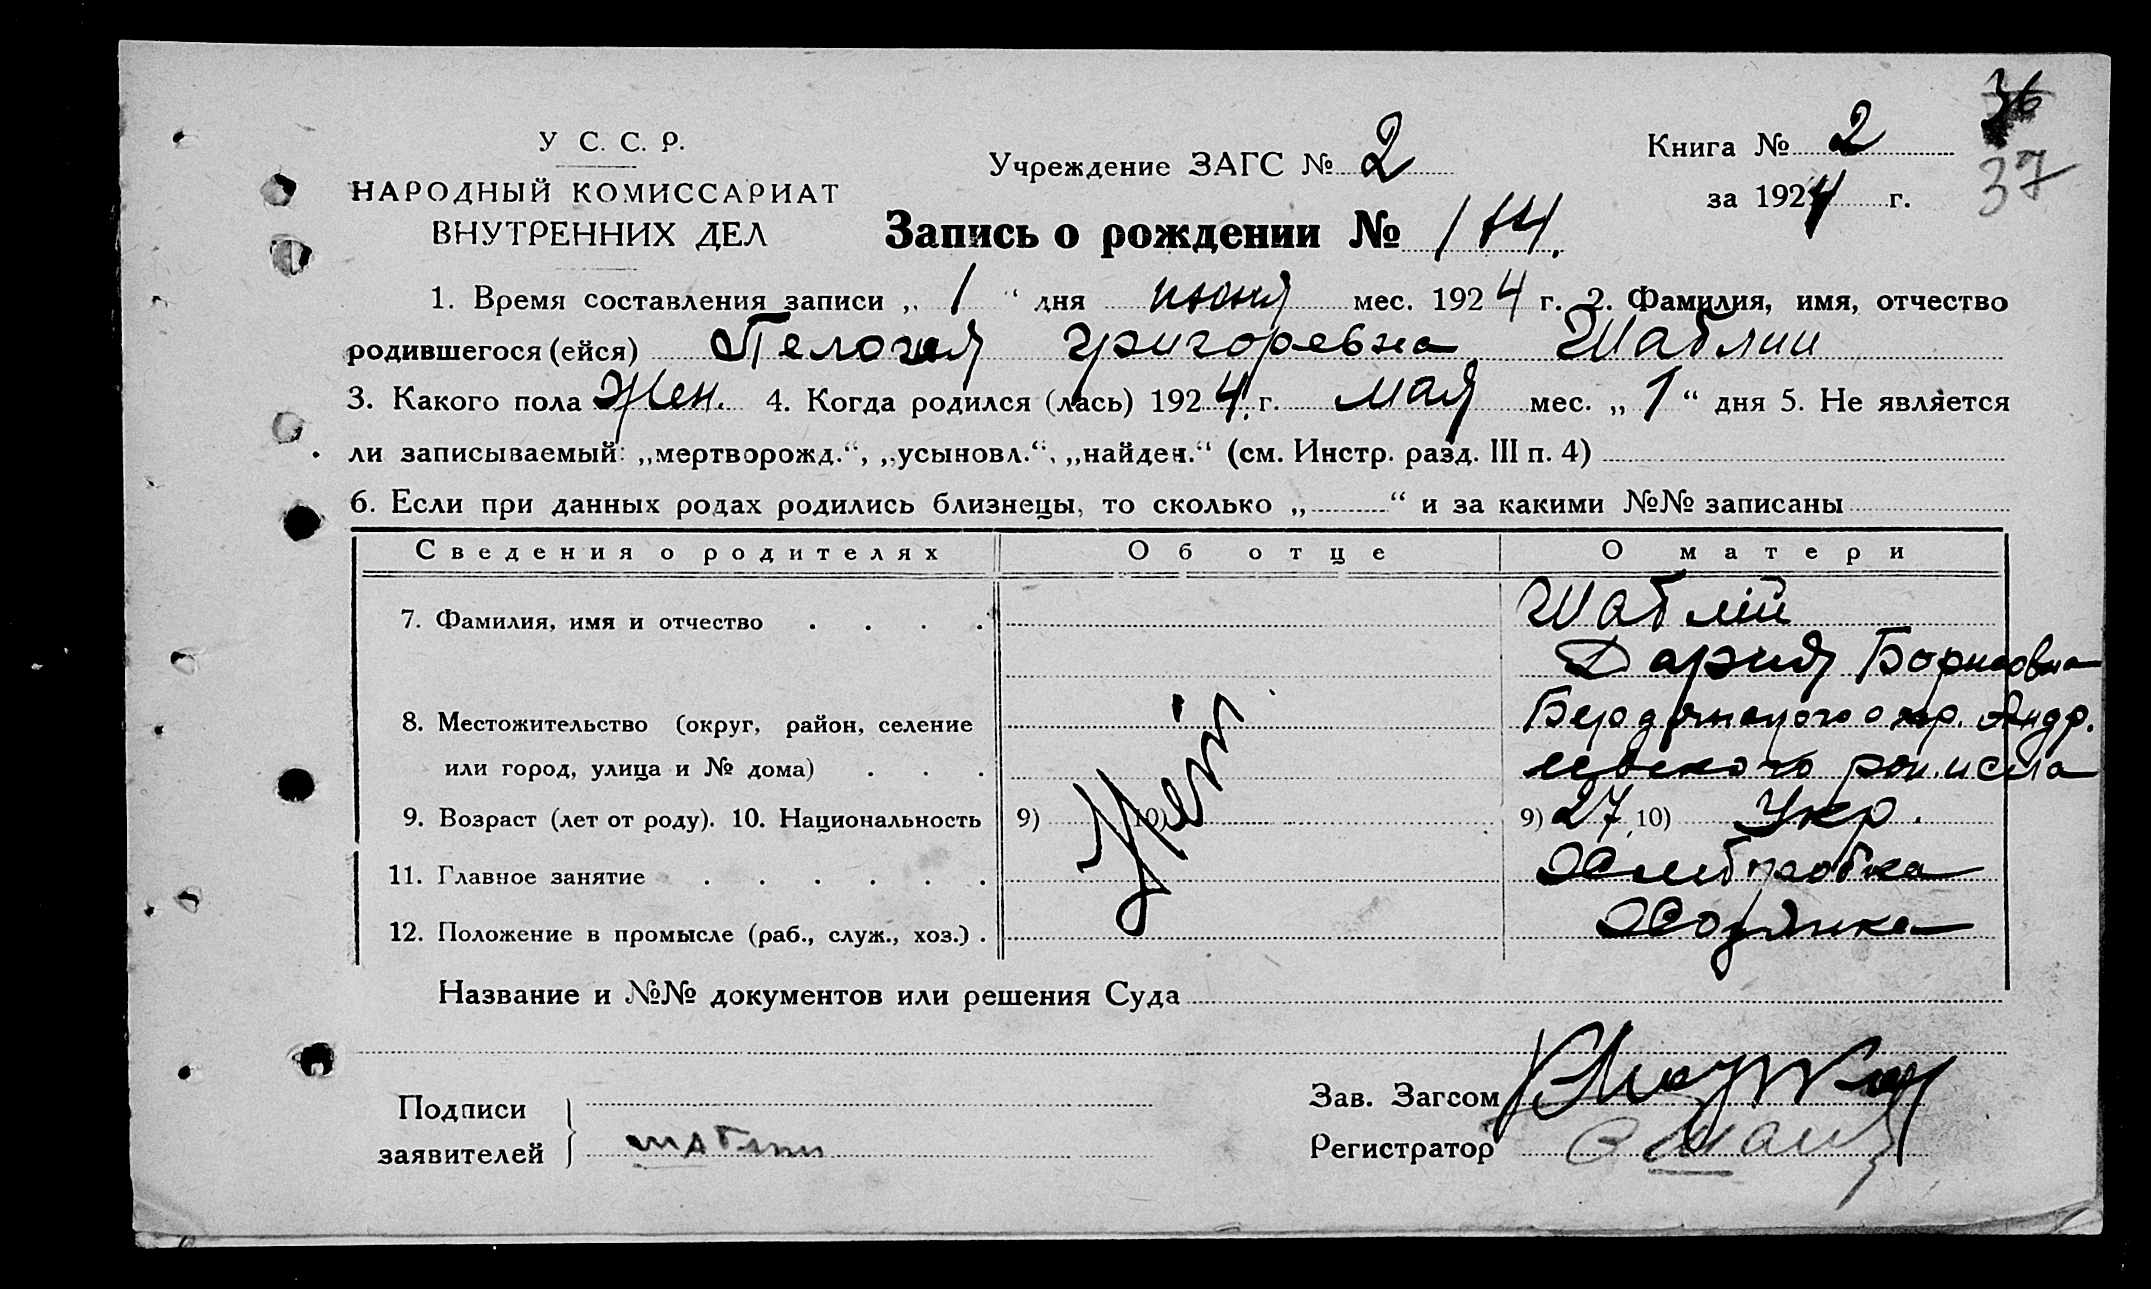 36
37
У С. С. Р.
НАРОДНЫЙ КОМИССАРИАТ
ВНУТРЕННИХ ДЕЛ
Учреждение ЗАГС № 2
Книга № 2
за 1924 г.
Запись о рождении № 174.
1. Время составления записи „ 1 “ дня июня мес. 1924 г. 2. Фамилия, имя, отчество
родившегося (ейся) Пелагия Григоревна Шаблии
3. Какого пола Жен. 4. Когда родился (лась) 1924. г. мая мес. „ 1 “ дня 5. Не является
ли записываемый: „мертворожд.“, „усыновл.“, „найден.“ (см. Инстр. разд. III п. 4)
6. Если при данных родах родились близнецы, то сколько „ “ и за какими №№ записаны
Сведения о родителях Об отце О матери
7. Фамилия, имя и отчество Шаблій
Дария Борисовна
8. Местожительство (округ, район, селение Бердянцкого окр. Андр.
или город, улица и № дома) евского рай. и села
9. Возраст (лет от роду). 10. Национальность 9) 10) 9) 27 10) Укр.
11. Главное занятие Хлибробка
12. Положение в промысле (раб., служ., хоз.) Хозянка
Название и №№ документов или решения Суда
Подписи
заявителей шабли
Зав. Загсом
Регистратор